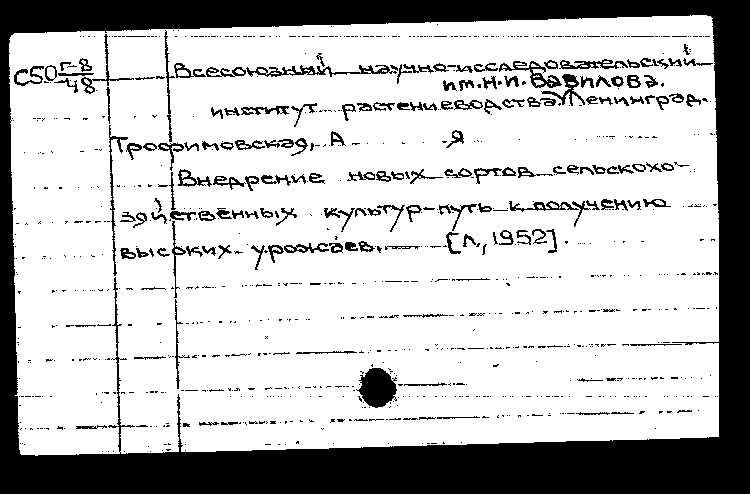 С50 Г-8
48
Всесоюзный научно-исследовательский
им. Н. И. Вавилова.
институт растениеводства Ленинград.
Трофимовская, А Я
Внедрение новых сортов сельскохо-
зяйственных культур-путь к получению
высоких урожаев. [Л, 1952].